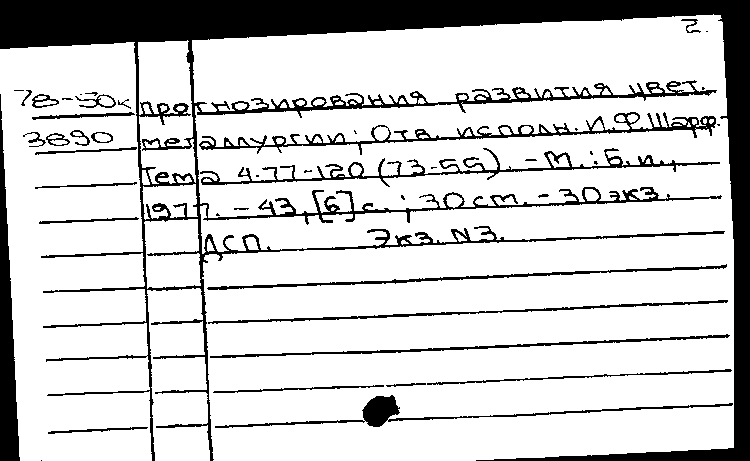 2.
78-50к прогнозирования развития цвет.
3890 металлургии; Отв. исполн. И.Ф.Шарф.-
Тема 4.77-120 (73-55). - М. : Б. и.,
1977. - 43, [6] с. ; 30 см. - 30 экз.
ДСП. Экз. N3.